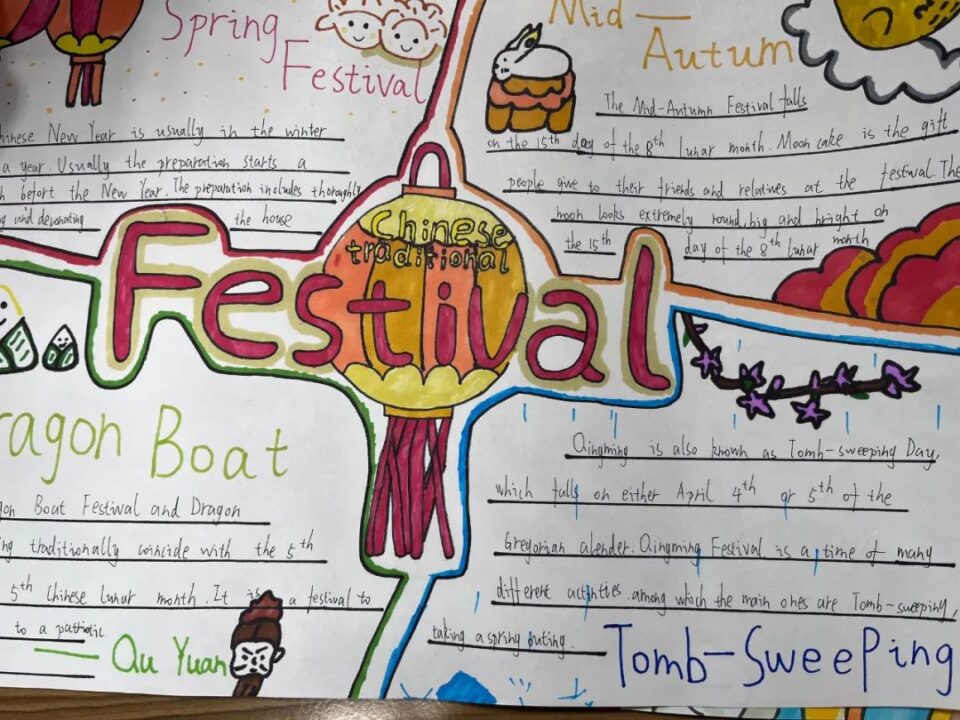 Spring
Festival
Chinese New Year is usually in the winter
a year. Usually the preparation starts a
befort the New Year. The preparation includes thoroughly
and devonating the house
Mid—
Autumn
The Mid-Autumn Festival falls
on the 15th day of the 8th lunar month. Moon cake is the gift
people give to their friends and relatives at the festival. The
moon looks extremely round, big and bright on
the 15th day of the 8th lunar month
Chinese
traditional
Festival
Dragon Boat
Boat Festival and Dragon
traditionally coincide with the 5th
5th Chinese lunar month. It is a festival to
to a patriotic
— Qu Yuan
Qingming is also known as Tomb-sweeping Day,
which falls on either April 4th or 5th of the
Gregorian alender. Qingming Festival is a time of many
different activities. among which the main ones are Tomb-sweeping,
taking a spring outing.
Tomb-Sweeping